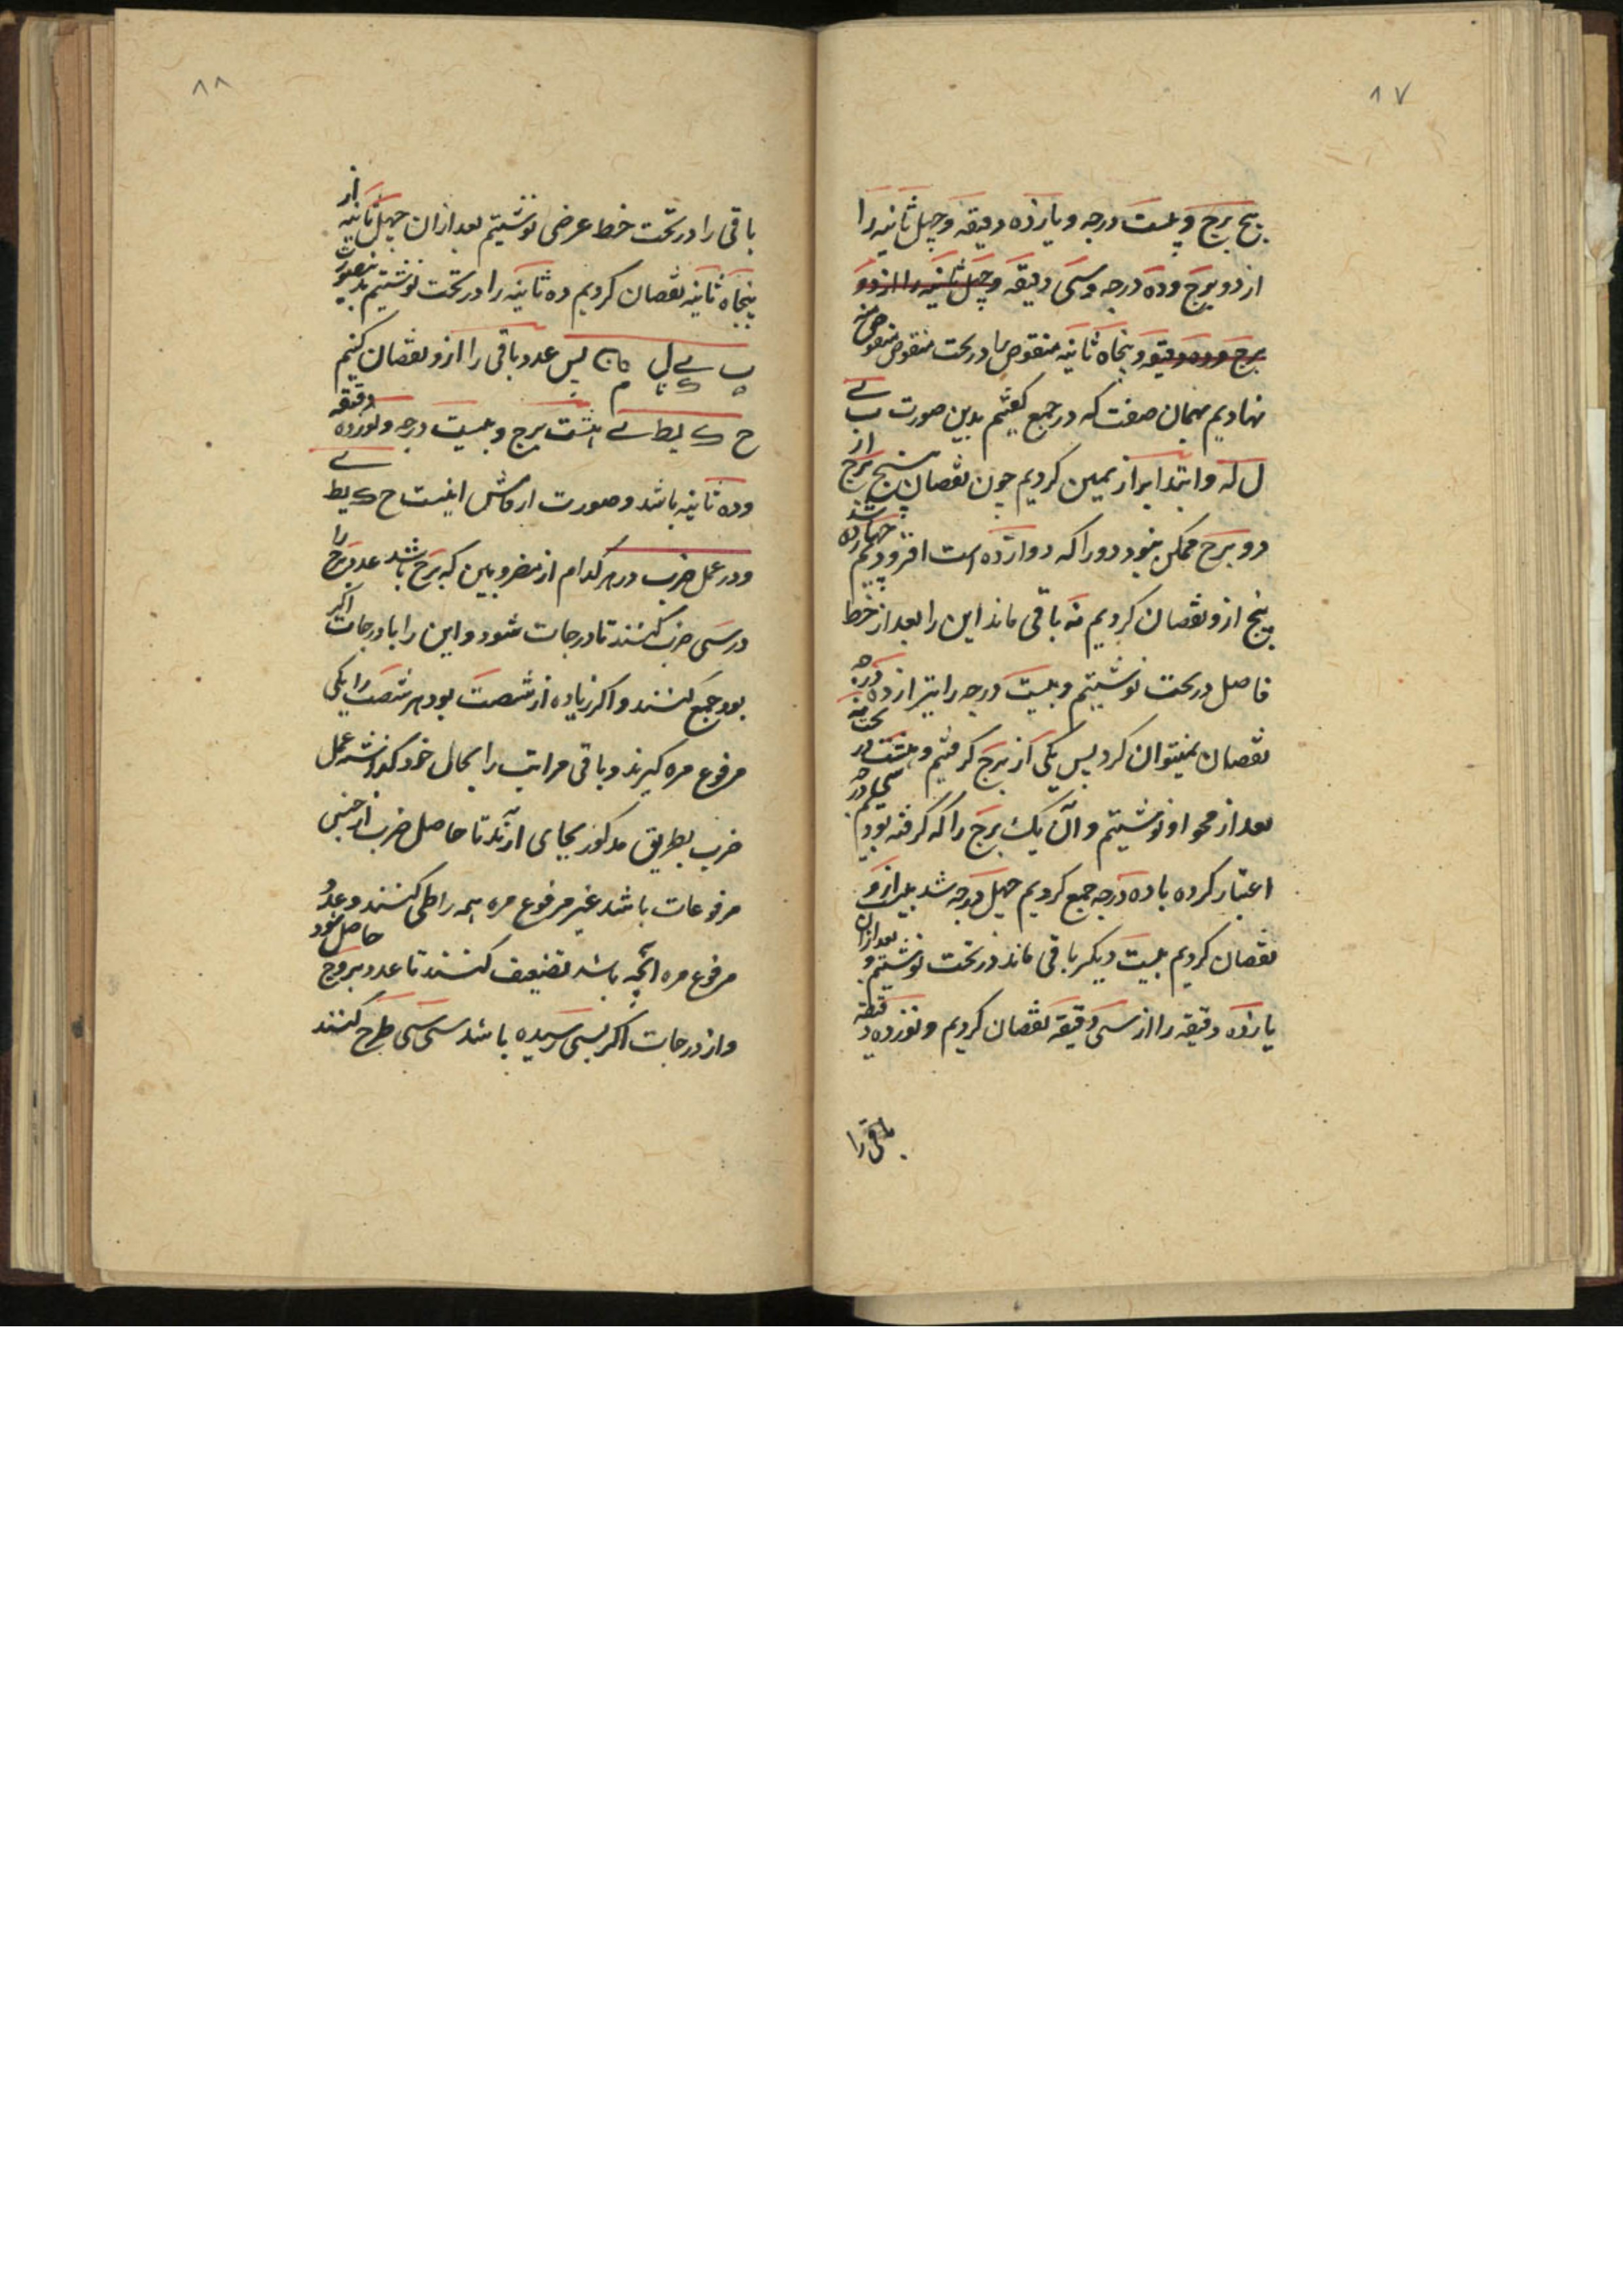 ۸۷
پنج برج و بیست درجه و یازده دقیقه و چهل ثانیه را
از دو برج و ده درجه و سی دقیقه و چهل ثانیه را از دو
برج و ده دقیقه و پنجاه ثانیه منقوص را در تحت منقوص منه
نهادیم بهمان صفت که در جمع گفتیم بدین صورت ب ے
ل که و ابتدا از یمین کردیم چون نقصان پنج برج از
دو برج ممکن نبود دور را که دوازده است افزودیم چهارده شد
پنج ازو نقصان کردیم نه باقی ماند این را بعد از خط
فاصل در تحت نوشتیم و بیست درجه را نیز از ده درجه
نقصان نمیتوان کرد پس یکی از برج گرفتیم و هشت در تحت نه
بعد از محو او نوشتیم و آن یک برج را که گرفته بودیم سی درجه
اعتبار کرده با ده درجه جمع کردیم چهل درجه شد بیست ازو
نقصان کردیم بیست دیگر باقی ماند در تحت نوشتیم و بعد ازان
یازده دقیقه را از سی دقیقه نقصان کردیم و نوزده دقیقه
باقی را
۸۸
باقی را در تحت خط عرضی نوشتیم بعد ازان چهل ثانیه از
پنجاه ثانیه نقصان کردیم ده ثانیه را در تحت نوشتیم بدینصورت
ب ے ل ن پس عدد باقی را ازو نقصان کنیم
ح ک یط ے هشت برج و بیست درجه و نوزده دقیقه
و ده ثانیه باشد و صورت ارقامش اینست ح ک یط ے
و در عمل ضرب در هر کدام از مضروبین که برج باشد عدد برج را
در سی ضرب کنند تا درجات شود و این را با درجات اگر
بود جمع کنند و اگر زیاده از شصت بود هر شصت را یکی
مرفوع مره گیرند و باقی مراتب را بحال خود گذاشته عمل
ضرب بطریق مذکور بجای آرند تا حاصل ضرب از جنس
مرفوعات باشد غیر مرفوع مره همه را طی کنند و عدد
مرفوع مره آنچه باشد تضعیف کنند تا عدد بروج حاصل شود
و از درجات اگر بسی رسیده باشد سی سی طرح کنند